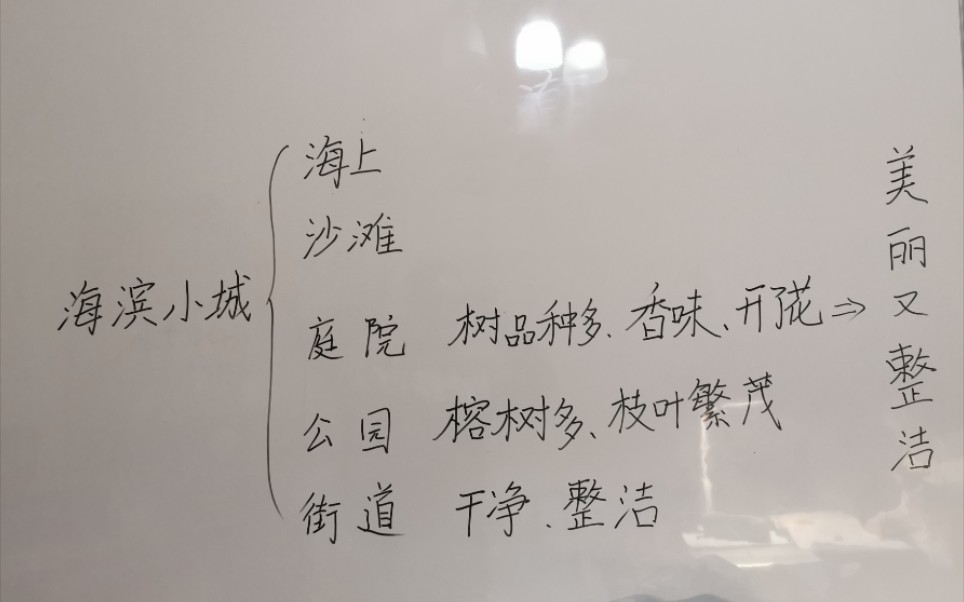 海上
沙滩
海滨小城
庭院 树品种多、香味、开花⇒
公园 榕树多、枝叶繁茂
街道 干净、整洁
美丽又整洁